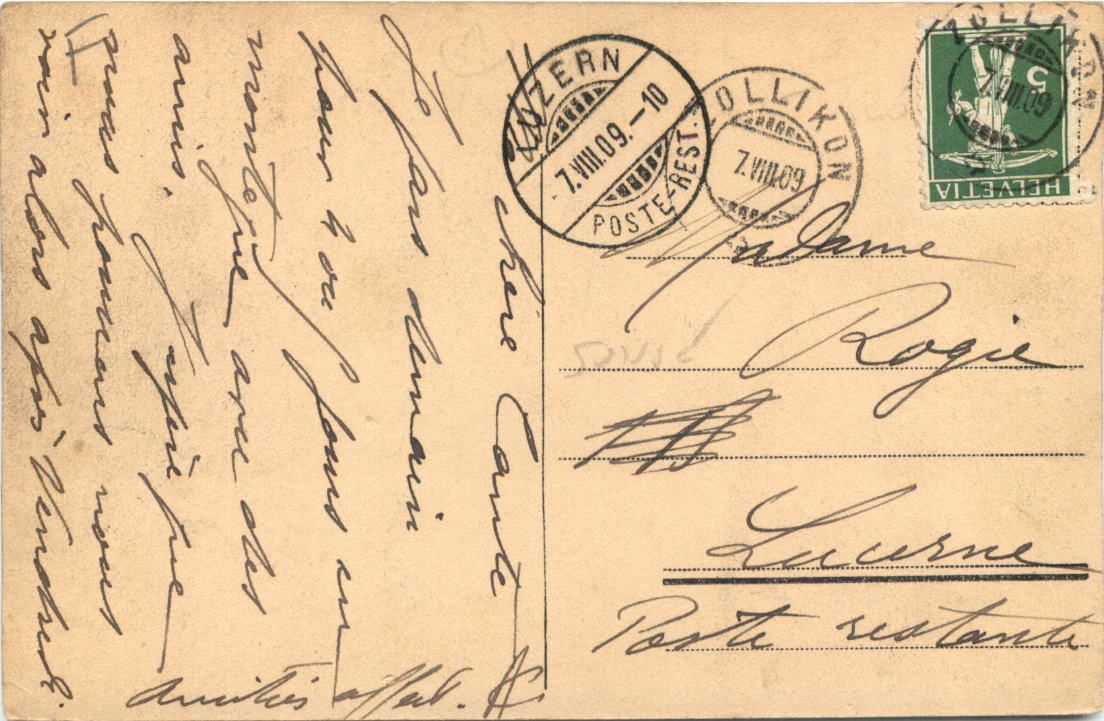 Chère Tante
Je pars demain
pour 4 ou jours en
montagne avec des
amis. J'espère que
nous pourrons nous
voir alors après Vendredi.
Amitiés affect. A.
LUZERN
7.VIII.09.-10
POSTE-REST.
ZOLLIKON
7.VIII.09
ZOLLIKON
7.VIII.09
5
HELVETIA
Madame
Rogie
Lucerne
Poste restante